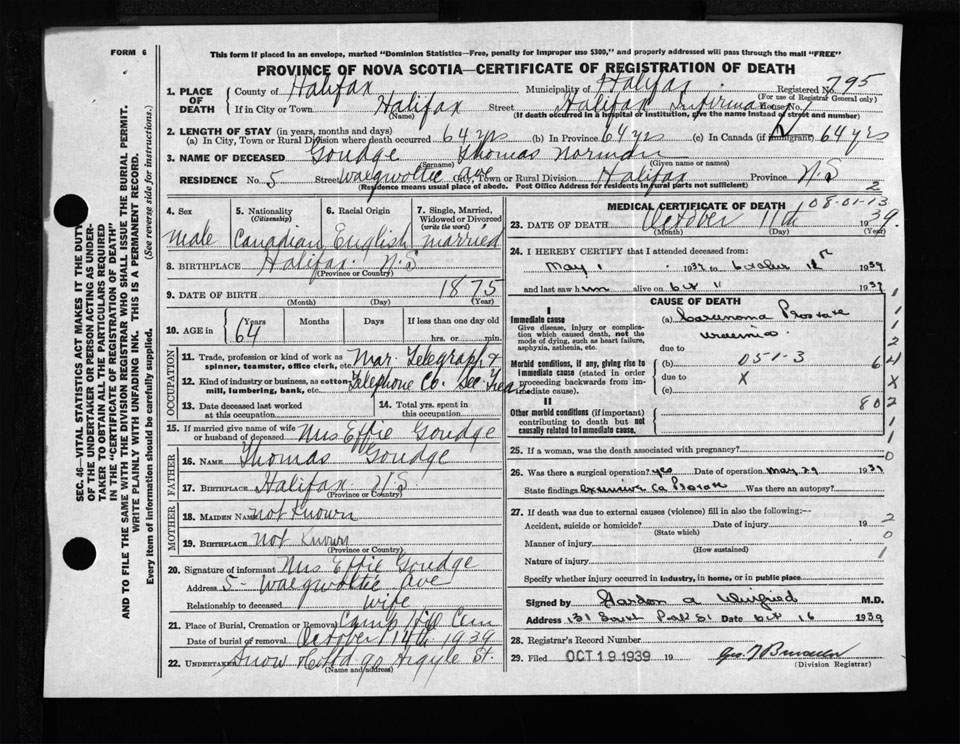 FORM 6
This form if placed in an envelope, marked "Dominion Statistics—Free, penalty for improper use $300," and properly addressed will pass through the mail "FREE"
PROVINCE OF NOVA SCOTIA—CERTIFICATE OF REGISTRATION OF DEATH
1. PLACE OF DEATH
County of Halifax Municipality of Halifax Registered No. 795
(For use of Registrar General only)
If in City or Town Halifax Street Halifax Infirmary House No.
(Name) (If death occurred in a hospital or institution, give the name instead of street and number)
2. LENGTH OF STAY (in years, months and days)
(a) In City, Town or Rural Division where death occurred 64 yrs (b) In Province 64 yrs (c) In Canada (if immigrant) 64 yrs
3. NAME OF DECEASED Goudge Thomas Norman
(Surname) (Given name or names)
RESIDENCE No. 5 Street Waegwoltic Ave City, Town or Rural Division Halifax Province N.S
(Residence means usual place of abode. Post Office Address for residents in rural parts not sufficient)
2
4. Sex Male
5. Nationality (Citizenship) Canadian
6. Racial Origin English
7. Single, Married, Widowed or Divorced (write the word) Married
8. BIRTHPLACE Halifax N.S
(Province or Country)
9. DATE OF BIRTH 1875
(Month) (Day) (Year)
10. AGE in 64 Years Months Days If less than one day old
hrs. or min.
OCCUPATION
11. Trade, profession or kind of work as spinner, teamster, office clerk, etc. Mar. Telegraph &
12. Kind of industry or business, as cotton mill, lumbering, bank, etc. Telephone Co. Sec. Treas
13. Date deceased last worked at this occupation
14. Total yrs. spent in this occupation
15. If married give name of wife or husband of deceased Mrs Effie Goudge
FATHER
16. NAME Thomas Goudge
17. BIRTHPLACE Halifax N.S
(Province or Country)
MOTHER
18. MAIDEN NAME Not Known
19. BIRTHPLACE Not Known
(Province or Country)
20. Signature of informant Mrs Effie Goudge
Address 5- Waegwoltic Ave
Relationship to deceased Wife
21. Place of Burial, Cremation or Removal Camp Hill Cem
Date of burial or removal October 14th 1939
22. Undertaker Snow & Co 90 Argyle St.
(Name and address)
MEDICAL CERTIFICATE OF DEATH 108-01-13
23. DATE OF DEATH October 11th 1939.
(Month) (Day) (Year)
24. I HEREBY CERTIFY that I attended deceased from:
May 1 1939 to October 1939
and last saw him alive on Oct 11 1939
CAUSE OF DEATH
I
Immediate cause
Give disease, injury or complication which caused death, not the mode of dying, such as heart failure, asphyxia, asthenia, etc.
(a) Carcinoma Prostate
uraemia
due to
Morbid conditions, if any, giving rise to immediate cause (stated in order proceeding backwards from immediate cause).
(b) 051-3 6
due to X
(c)
II
Other morbid conditions (if important) contributing to death but not causally related to immediate cause.
80
1
1
2
4
X
2
1
1
0
25. If a woman, was the death associated with pregnancy?
26. Was there a surgical operation? yes Date of operation May 29 1939
State findings extensive Ca Prostate Was there an autopsy?
27. If death was due to external causes (violence) fill in also the following:—
Accident, suicide or homicide? Date of injury 19
(State which)
Manner of injury
(How sustained)
Nature of injury
2
0
1
Specify whether injury occurred in industry, in home, or in public place
Signed by Gordon A M.D.
Address 131 South Park St Date Oct 16 1939
28. Registrar's Record Number
29. Filed OCT 19 1939 19
(Division Registrar)
SEC. 46—VITAL STATISTICS ACT MAKES IT THE DUTY OF THE UNDERTAKER OR PERSON ACTING AS UNDERTAKER TO OBTAIN ALL THE PARTICULARS REQUIRED IN THE "CERTIFICATE OF REGISTRATION OF DEATH" AND TO FILE THE SAME WITH THE DIVISION REGISTRAR WHO SHALL ISSUE THE BURIAL PERMIT.
WRITE PLAINLY WITH UNFADING INK. THIS IS A PERMANENT RECORD.
Every item of information should be carefully supplied. (See reverse side for instructions.)